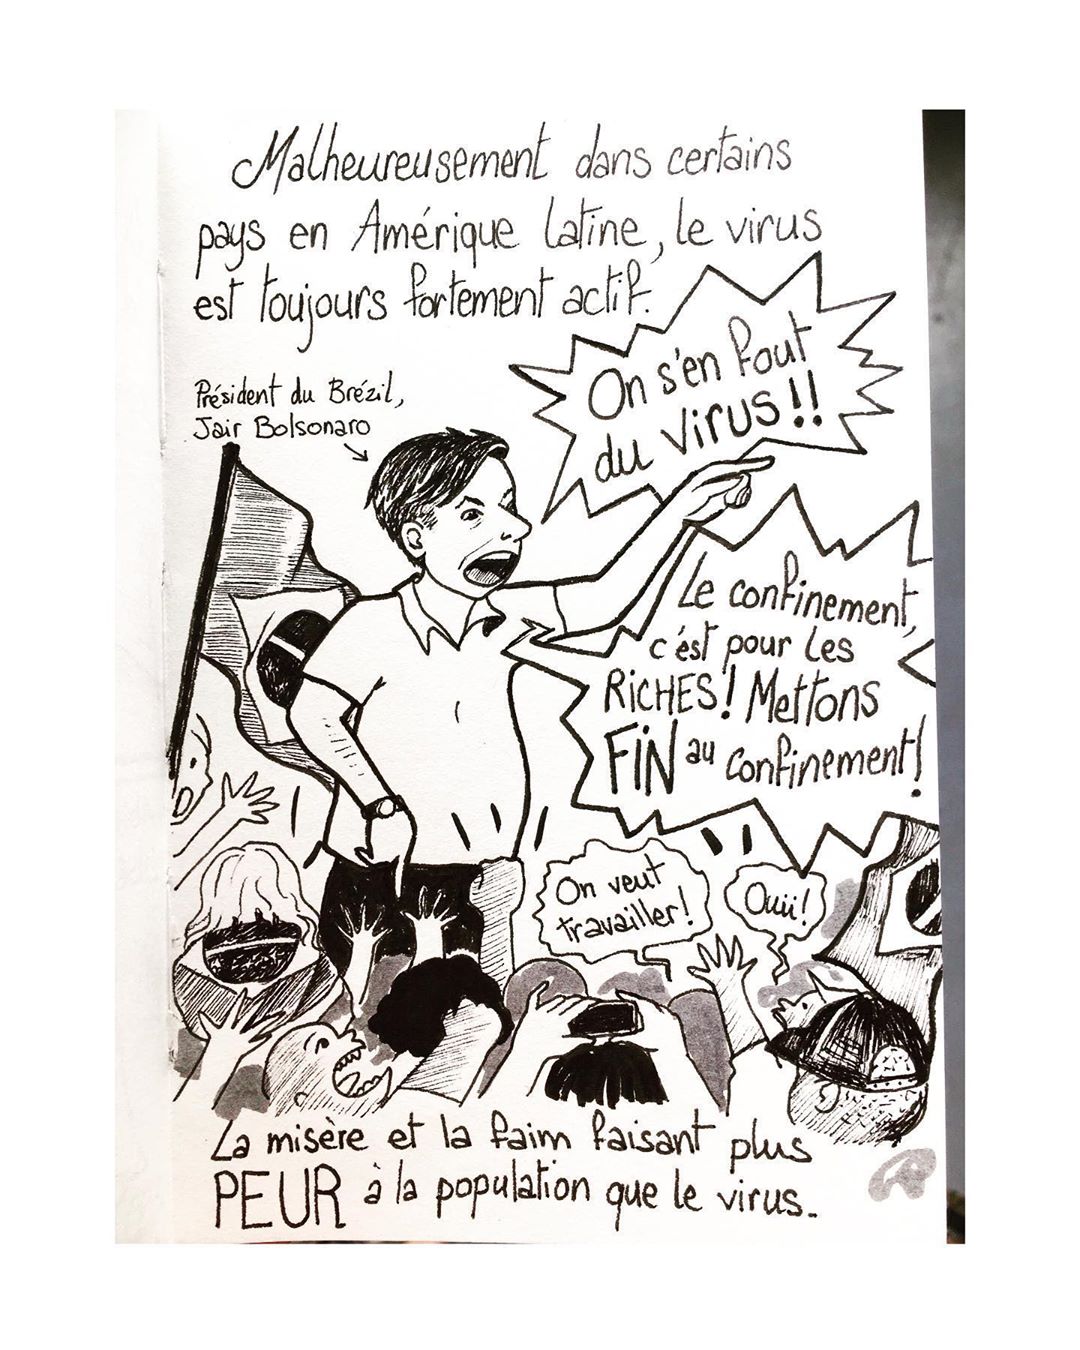 Malheureusement dans certains
pays en Amérique latine, le virus
est toujours fortement actif.
Président du Brézil,
Jair Bolsonaro
On s'en fout
du virus!!
Le confinement,
c'est pour les
RICHES! Mettons
FIN au confinement!
On veut
travailler!
Ouii!
La misère et la faim faisant plus
PEUR à la population que le virus.